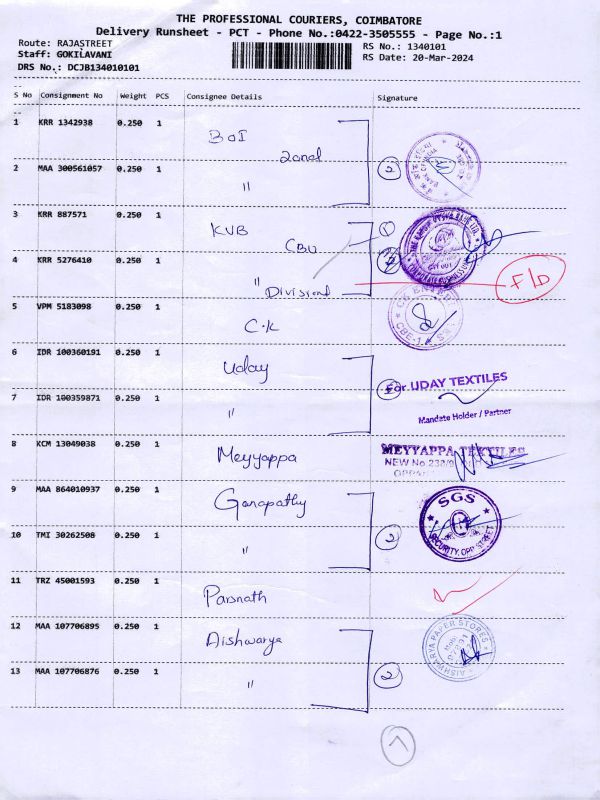 THE PROFESSIONAL COURIERS, COIMBATORE
Delivery Runsheet - PCT - Phone No.:0422-3505555 - Page No.:1
Route: RAJASTREET
Staff: GOKILAVANI
DRS No.: DCJB134010101
RS No.: 1340101
RS Date: 20-Mar-2024
S No Consignment No Weight PCS Consignee Details Signature
1 KRR 1342938 0.250 1 BOI
Zonal
2 MAA 300561057 0.250 1 "
2
3 KRR 887571 0.250 1 KVB
CBU
1
4 KRR 5276410 0.250 1 "
Divisional
F/D
5 VPM 5183098 0.250 1 C.K
6 IDR 100360191 0.250 1 Uday
For UDAY TEXTILES
7 IDR 100359871 0.250 1 "
Mandate Holder / Partner
8 KCM 13049038 0.250 1 Meyyappa
MEYYAPPA TEXTILES
NEW No.
9 MAA 864010937 0.250 1 Ganapathy
SGS
SECURITY, OPP. STREET
10 TMI 30262508 0.250 1 "
2
11 TRZ 45001593 0.250 1 Parsnath
12 MAA 107706895 0.250 1 Aishwarya
AISHWARYA PAPER STORES
13 MAA 107706876 0.250 1 "
2